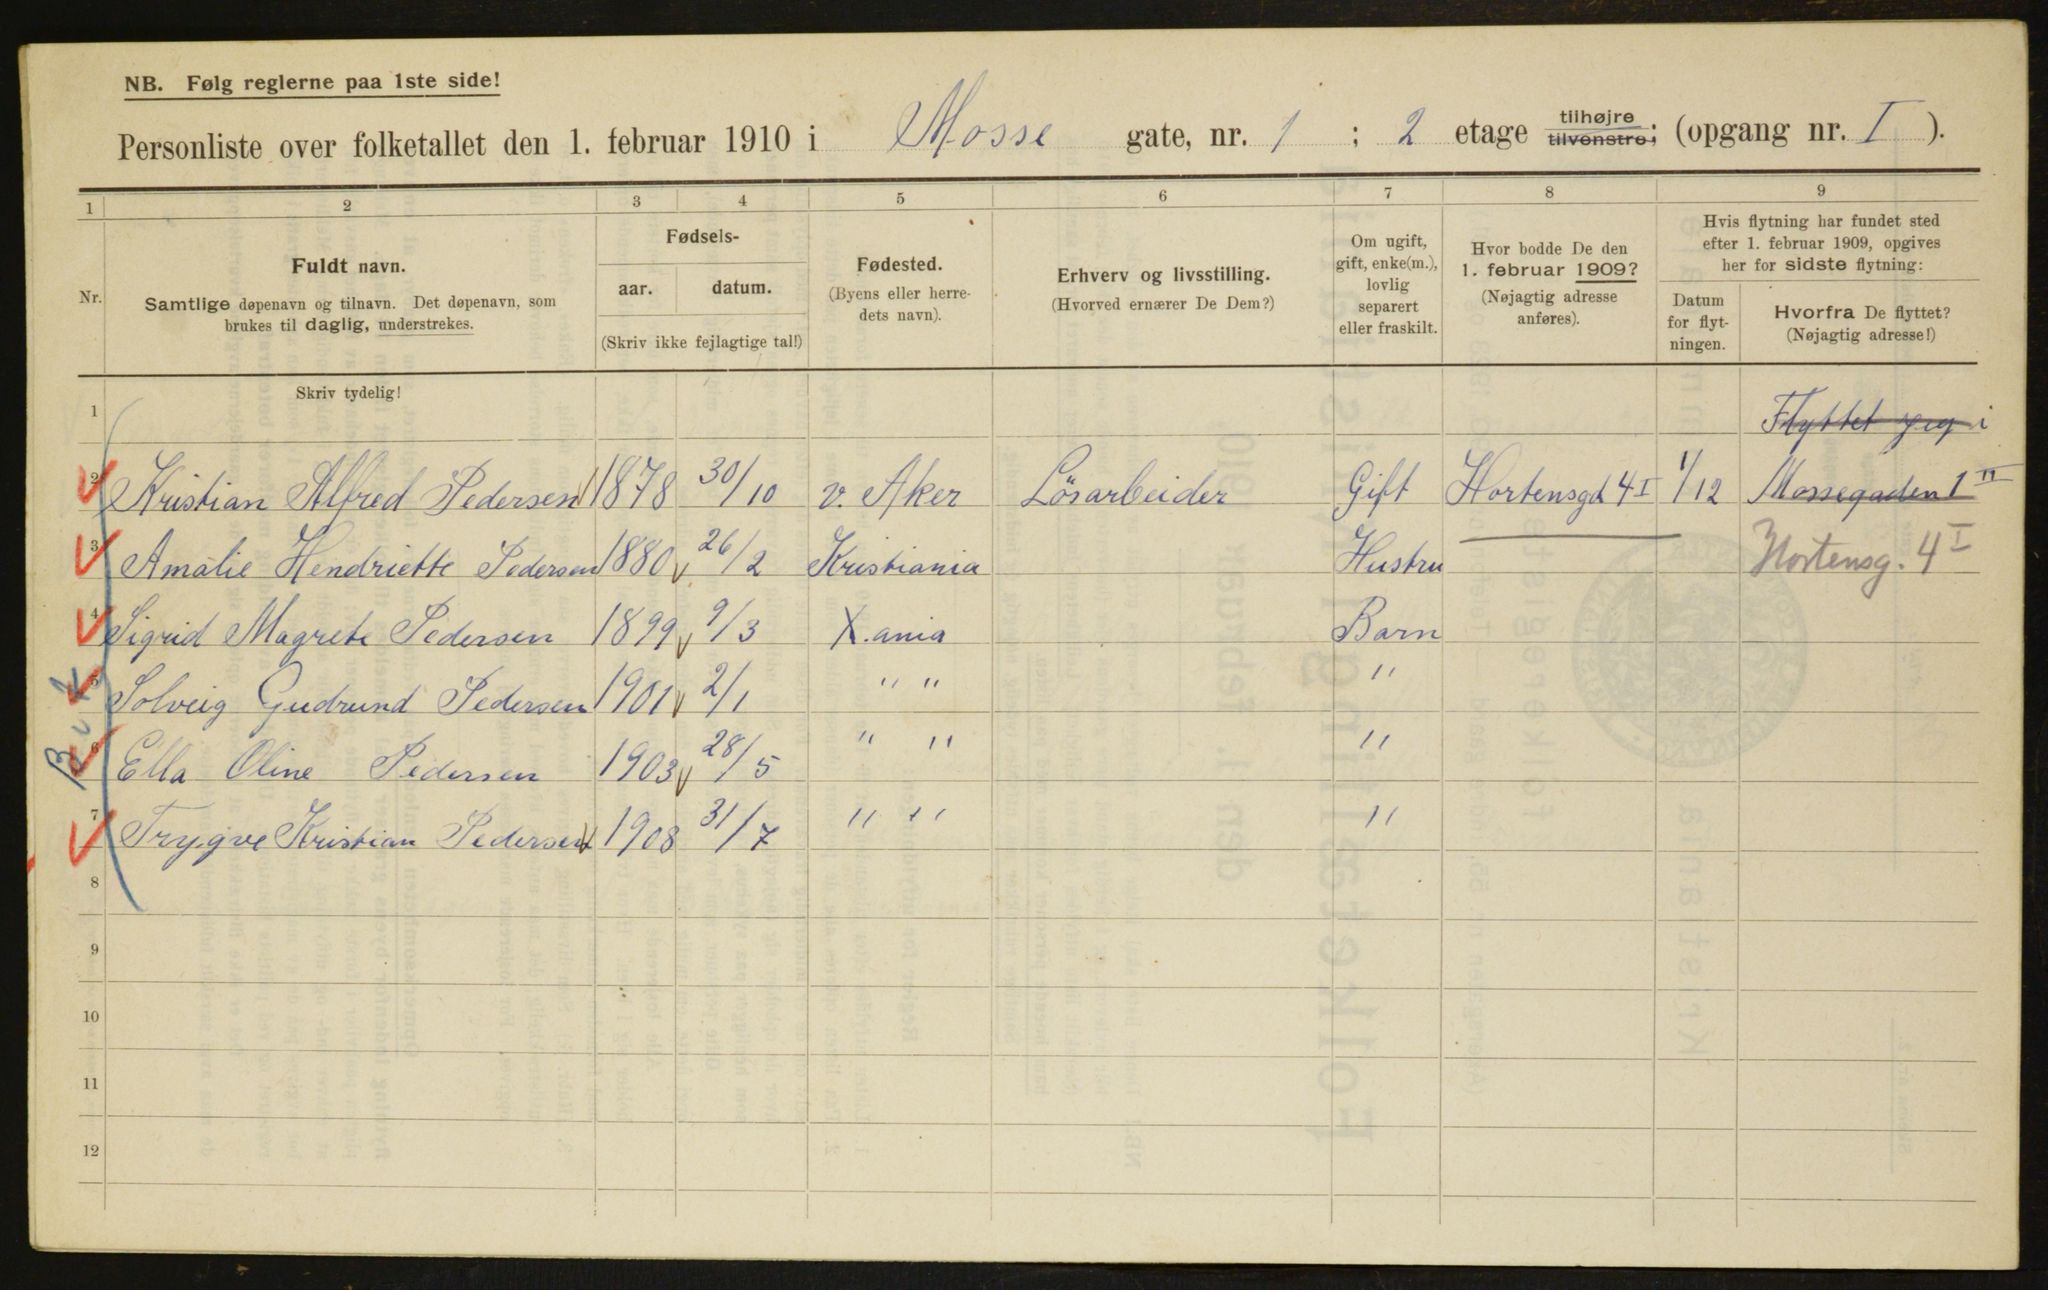 NB. Følg reglerne paa 1ste side!
Personliste over folketallet den 1. februar 1910 i Mosse gate, nr. 1 ; 2 etage tilhøjre tilvenstre; (opgang nr. I ).
1 2 3 4 5 6 7 8 9
Nr.
Fuldt navn.
Samtlige døpenavn og tilnavn. Det døpenavn, som
brukes til daglig, understrekes.
Fødsels-
aar. datum.
(Skriv ikke fejlagtige tal!)
Fødested.
(Byens eller herre-
dets navn).
Erhverv og livsstilling.
(Hvorved ernærer De Dem?)
Om ugift,
gift, enke(m.),
lovlig
separert
eller fraskilt.
Hvor bodde De den
1. februar 1909?
(Nøjagtig adresse
anføres).
Hvis flytning har fundet sted
efter 1. februar 1909, opgives
her for sidste flytning:
Datum
for flyt-
ningen.
Hvorfra De flyttet?
(Nøjagtig adresse!)
Skriv tydelig!
1 Flyttet jeg i
2 Kristian Alfred Pedersen 1878 30/10 v. Aker Løsarbeider Gift Hortensgd 4 I 1/12 Mossegaden 1 II
3 Amalie Hendriette Pedersen 1880 26/2 Kristiania Hustru Hortensg. 4 I
4 Sigrid Magrete Pedersen 1899 9/3 X.ania Barn
5 Solveig Gudrund Pedersen 1901 2/1 " " "
6 Ella Oline Pedersen 1903 28/5 " " "
7 Trygve Kristian Pedersen 1908 31/7 " " "
8
9
10
11
12